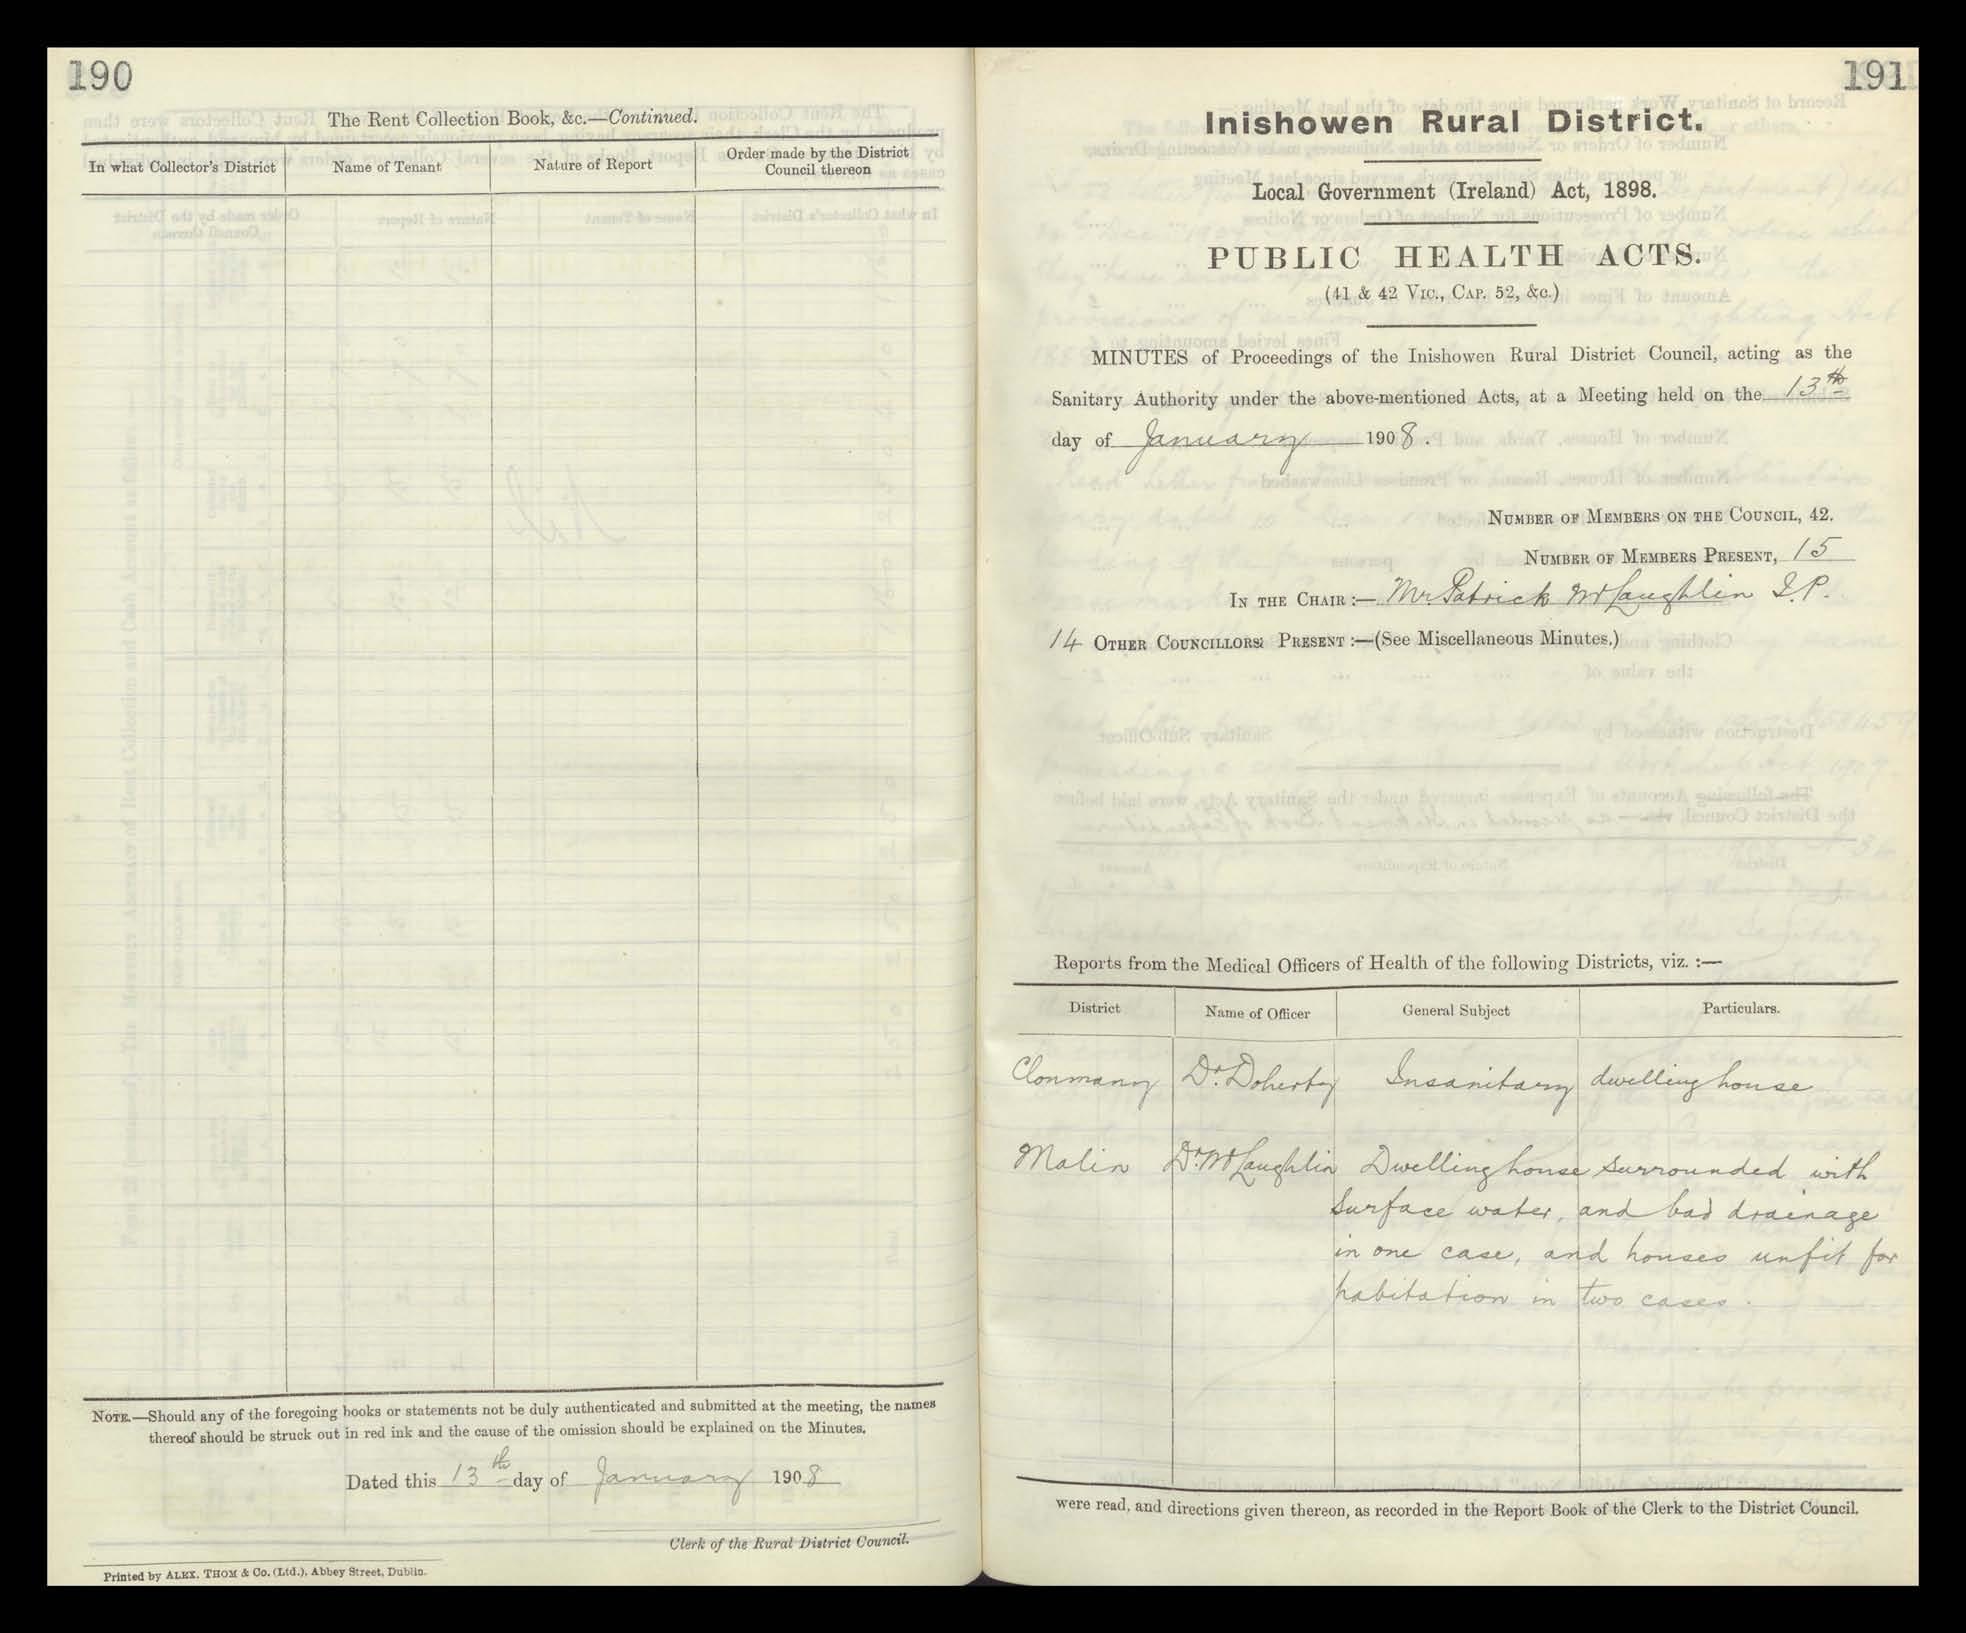 190
The Rent Collection Book, &c.—Continued.
In what Collector's District
Name of Tenant
Nature of Report
Order made by the District
Council thereon
NOTE.—Should any of the foregoing books or statements not be duly authenticated and submitted at the meeting, the names
thereof should be struck out in red ink and the cause of the omission should be explained on the Minutes.
Dated this 13th day of January 1908
Clerk of the Rural District Council.
Printed by ALEX. THOM & Co. (Ltd.), Abbey Street, Dublin.
191
Inishowen Rural District.
Local Government (Ireland) Act, 1898.
PUBLIC HEALTH ACTS.
(41 & 42 VIC., CAP. 52, &c.)
MINUTES of Proceedings of the Inishowen Rural District Council, acting as the
Sanitary Authority under the above-mentioned Acts, at a Meeting held on the 13th
day of January 1908.
NUMBER OF MEMBERS ON THE COUNCIL, 42.
NUMBER OF MEMBERS PRESENT, 15
IN THE CHAIR :— Mr. Patrick McLaughlin J.P.
14 OTHER COUNCILLORS PRESENT :—(See Miscellaneous Minutes.)
Reports from the Medical Officers of Health of the following Districts, viz. :—
District
Name of Officer
General Subject
Particulars.
Clonmany Dr. Doherty Insanitary dwelling house
Malin Dr. McLaughlin Dwelling house surrounded with
surface water, and bad drainage
in one case, and houses unfit for
habitation in two cases.
were read, and directions given thereon, as recorded in the Report Book of the Clerk to the District Council.